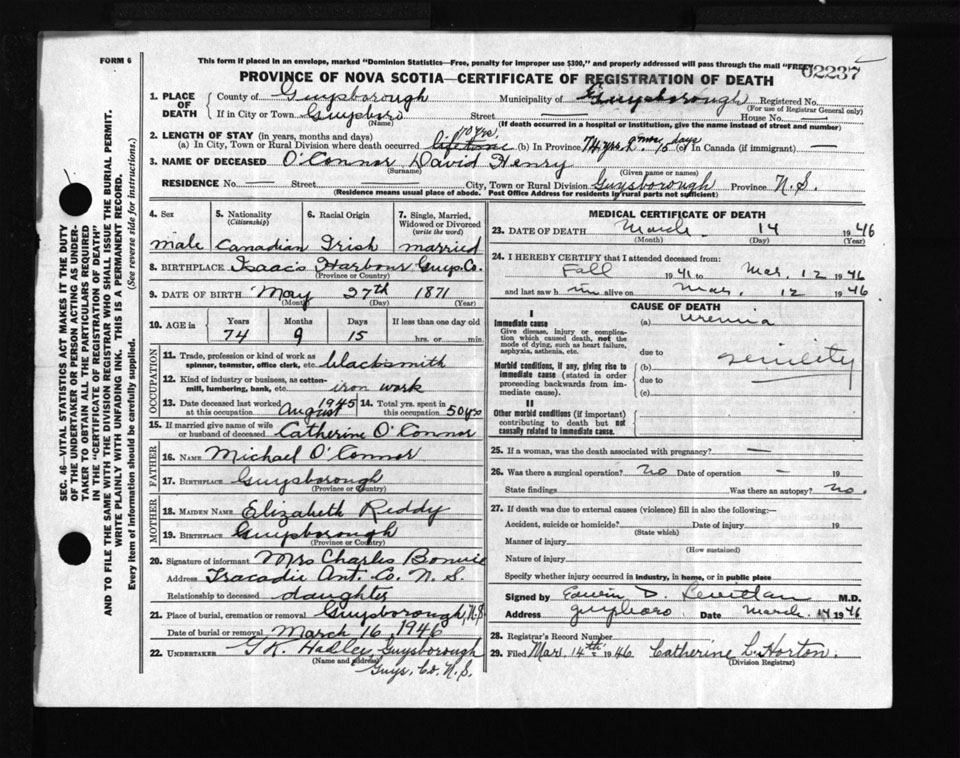 FORM 6
This form if placed in an envelope, marked "Dominion Statistics—Free, penalty for improper use $300," and properly addressed will pass through the mail "FREE"
02237
PROVINCE OF NOVA SCOTIA—CERTIFICATE OF REGISTRATION OF DEATH
1. PLACE OF DEATH
County of Guysborough Municipality of Guysborough Registered No.
(For use of Registrar General only)
If in City or Town Guysboro Street — House No. —
(Name) (If death occurred in a hospital or institution, give the name instead of street and number)
2. LENGTH OF STAY (in years, months and days)
(a) In City, Town or Rural Division where death occurred lifetime 70 yrs. (b) In Province 74 yrs 9 mos 15 days (c) In Canada (if immigrant) —
3. NAME OF DECEASED O'Connor David Henry
(Surname) (Given name or names)
RESIDENCE No. — Street City, Town or Rural Division Guysborough Province N.S.
(Residence means usual place of abode. Post Office Address for residents of rural parts not sufficient)
4. Sex 5. Nationality (Citizenship) 6. Racial Origin 7. Single, Married, Widowed or Divorced (write the word)
male Canadian Irish married
8. BIRTHPLACE Isaac's Harbour Guys Co.
(Province or Country)
9. DATE OF BIRTH May 27th 1871
(Month) (Day) (Year)
10. AGE in Years Months Days If less than one day old
74 9 15 hrs. or min.
OCCUPATION
11. Trade, profession or kind of work as spinner, teamster, office clerk, etc. blacksmith
12. Kind of industry or business, as cotton-mill, lumbering, bank, etc. iron work
13. Date deceased last worked at this occupation August 1945 14. Total yrs. spent in this occupation 50 yrs
15. If married give name of wife or husband of deceased Catherine O'Connor
FATHER
16. NAME Michael O'Connor
17. BIRTHPLACE Guysborough
(Province or Country)
MOTHER
18. MAIDEN NAME Elizabeth Reddy
19. BIRTHPLACE Guysborough
(Province or Country)
20. Signature of informant Mrs Charles Bonvie
Address Tracadie Ant. Co. N. S.
Relationship to deceased daughter
21. Place of burial, cremation or removal Guysborough, N.S
Date of burial or removal March 16 1946
22. UNDERTAKER G.K. Hadley, Guysborough
(Name and address) Guys. Co. N. S.
MEDICAL CERTIFICATE OF DEATH
23. DATE OF DEATH March 14 1946
(Month) (Day) (Year)
24. I HEREBY CERTIFY that I attended deceased from:
Fall 1941 to Mar. 12 1946
and last saw him alive on Mar. 12 1946
CAUSE OF DEATH
I
Immediate cause (a) uremia
Give disease, injury or complication which caused death, not the mode of dying, such as heart failure, asphyxia, asthenia, etc.
due to
Morbid conditions, if any, giving rise to immediate cause (stated in order proceeding backwards from immediate cause).
(b) senility
due to
(c)
II
Other morbid conditions (if important) contributing to death but not causally related to immediate cause.
25. If a woman, was the death associated with pregnancy? —
26. Was there a surgical operation? no Date of operation — 19
State findings Was there an autopsy? no.
27. If death was due to external causes (violence) fill in also the following:—
Accident, suicide or homicide? Date of injury 19
(State which)
Manner of injury
(How sustained)
Nature of injury
Specify whether injury occurred in industry, in home, or in public place
Signed by Edwin D. M.D.
Address guysboro Date March 14 1946
28. Registrar's Record Number
29. Filed Mar. 14th 1946 Catherine L. Horton.
(Division Registrar)
SEC. 46—VITAL STATISTICS ACT MAKES IT THE DUTY
OF THE UNDERTAKER OR PERSON ACTING AS UNDER-
TAKER TO OBTAIN ALL THE PARTICULARS REQUIRED
IN THE "CERTIFICATE OF REGISTRATION OF DEATH"
AND TO FILE THE SAME WITH THE DIVISION REGISTRAR WHO SHALL ISSUE THE BURIAL PERMIT.
WRITE PLAINLY WITH UNFADING INK. THIS IS A PERMANENT RECORD.
Every item of information should be carefully supplied. (See reverse side for instructions.)